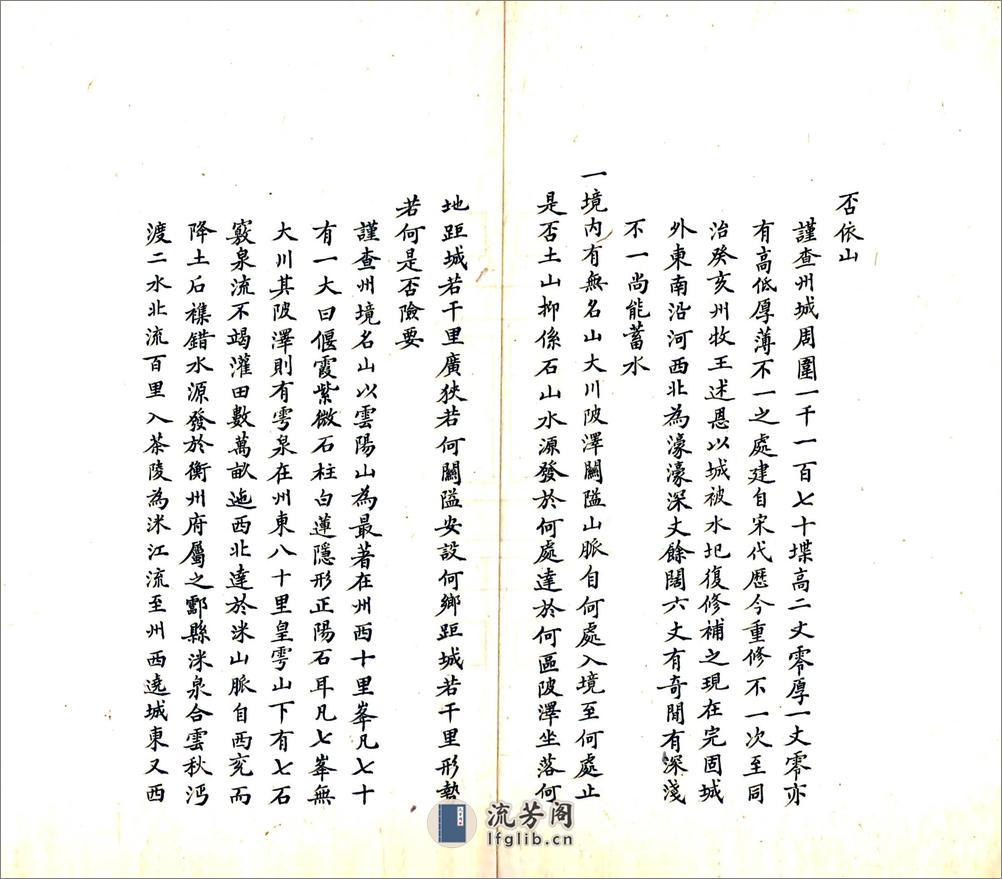 否依山
謹查州城周圍一千一百七十堞高二丈零厚一丈零亦
有高低厚薄不一之處建自宋代歷今重修不一次至同
治癸亥州牧王述恩以城被水圮復修補之現在完固城
外東南沿河西北為濠濠深丈餘闊六丈有奇間有深淺
不一尚能蓄水
一境内有無名山大川陂澤關隘山脈自何處入境至何處止
是否土山抑係石山水源發於何處達於何區陂澤坐落何
地距城若干里廣狹若何關隘安設何鄉距城若干里形勢
若何是否險要
謹查州境名山以雲陽山為最著在州西十里峯凡七十
有一大曰偃霞紫微石柱白蓮隱形正陽石耳凡七峯無
大川其陂澤則有雩泉在州東八十里皇雩山下有七石
竅泉流不竭灌田數萬畝迤西北達於洣山脈自西兖而
降土石襍錯水源發於衡州府屬之酃縣洣泉合雲秋沔
渡二水北流百里入茶陵為洣江流至州西遶城東又西
流芳阁
lfglib.cn